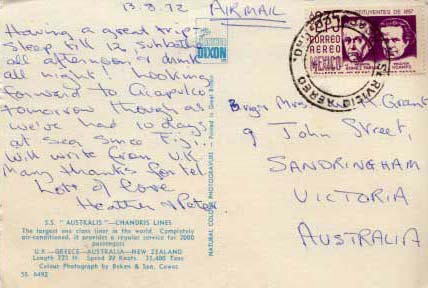 13.8.72 AIRMAIL
Having a great trip
Sleep till 12, sunbathe
all afternoon & drink
all night. Looking
forward to Acapulco
tomorrow though as
we've had 10 days
at sea since Fiji.
Will write from U.K.
Many thanks for tel.
Lots of love
Heather & Peter
S.S. "AUSTRALIS"—CHANDRIS LINES
The largest one class liner in the world. Completely
air-conditioned, it provides a regular service for 2000
passengers
U.K.—GREECE—AUSTRALIA—NEW ZEALAND
Length 723 ft. Speed 22 Knots 35,400 Tons
Colour Photograph by Beken & Son, Cowes
SS 6492
DIXON
NATURAL COLOUR PHOTOGRAVURE - Printed in Great Britain
CONSTITUYENTES DE 1857
CORREO
AEREO
MEXICO
SERVICIO AEREO
Mrs H Grant
9 John Street,
SANDRINGHAM
VICTORIA
AUSTRALIA